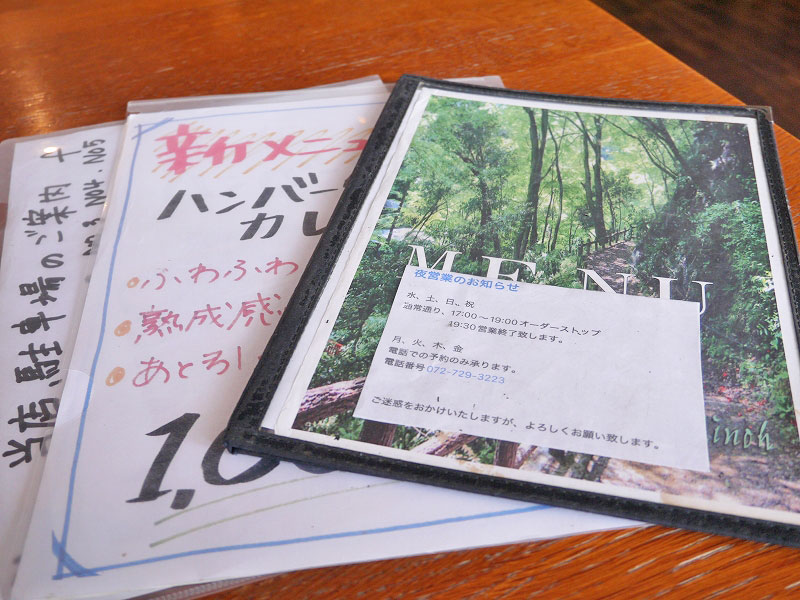 当店駐車場のご案内
No4. No5
新メニュ
ハンバー
カレ
ふわふわ
熟成感
あとろ
1,0
MENU
夜営業のお知らせ
水、土、日、祝
通常通り、17:00〜19:00オーダーストップ
19:30営業終了致します。
月、火、木、金
電話での予約のみ承ります。
電話番号072-729-3223
ご迷惑をおかけいたしますが、よろしくお願い致します。
inoh